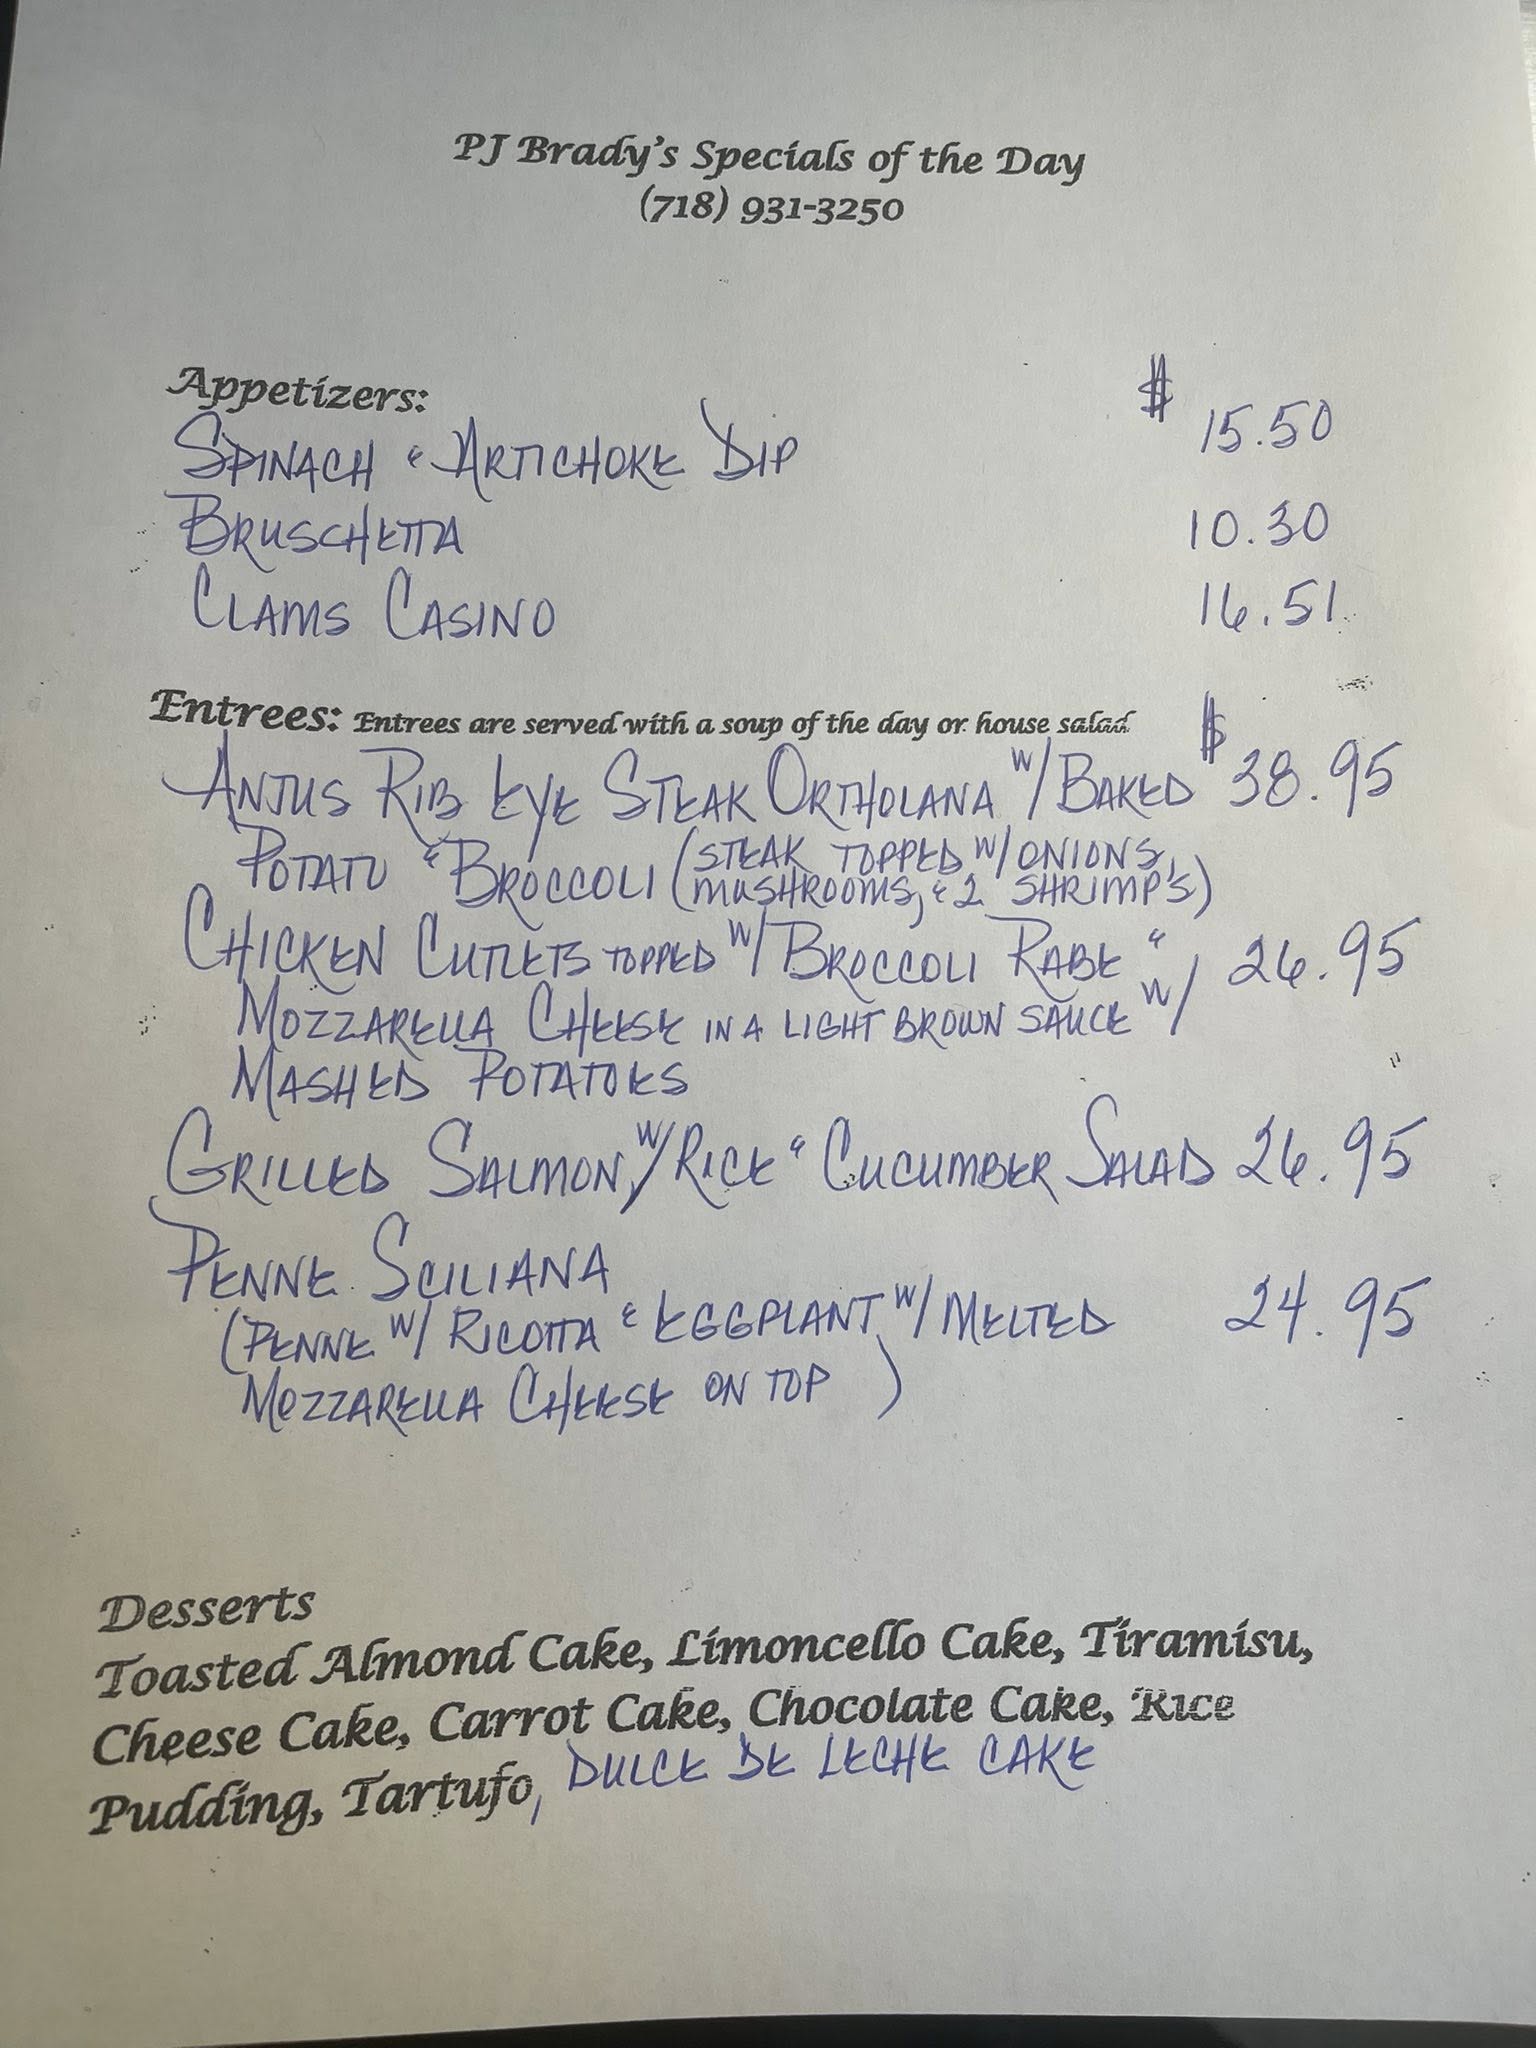 PJ Brady's Specials of the Day
(718) 931-3250
Appetizers: $
SPINACH & ARTICHOKE DIP 15.50
BRUSCHETTA 10.30
CLAMS CASINO 16.51
Entrees: Entrees are served with a soup of the day or house salad $
ANJUS RIB EYE STEAK ORTHOLANA W/ BAKED 38.95
POTATO & BROCCOLI (STEAK TOPPED W/ ONIONS,
MUSHROOMS, & 2 SHRIMPS)
CHICKEN CUTLETS TOPPED W/ BROCCOLI RABE & 26.95
MOZZARELLA CHEESE IN A LIGHT BROWN SAUCE W/
MASHED POTATOES
GRILLED SALMON W/ RICE & CUCUMBER SALAD 26.95
PENNE SCILIANA
(PENNE W/ RICOTTA & EGGPLANT W/ MELTED 24.95
MOZZARELLA CHEESE ON TOP)
Desserts
Toasted Almond Cake, Limoncello Cake, Tiramisu,
Cheese Cake, Carrot Cake, Chocolate Cake, Rice
Pudding, Tartufo, DULCE DE LECHE CAKE